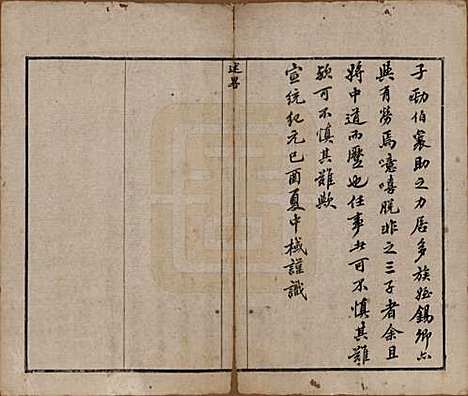 子勁伯襄助之力居多族姪錫卿亦
與有勞焉噫嘻脫非之三子者余且
將中道而壓也任事者可不慎其難
歟可不慎其難歟
宣統紀元己酉夏中棫謹識
述畧